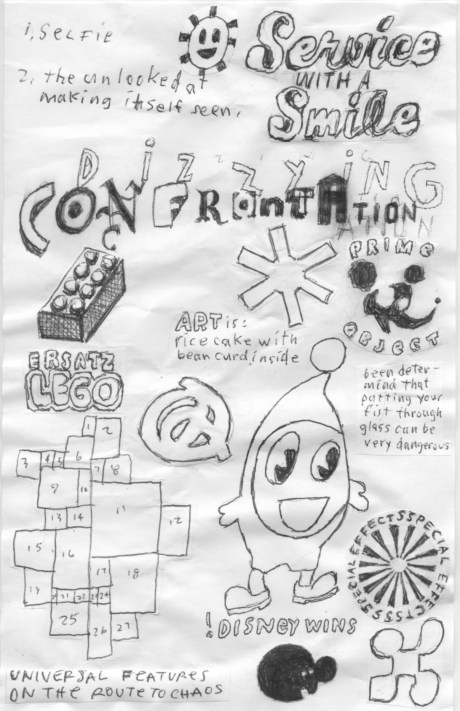 1, SELFIE
2, the unlooked at
making itself seen,
Service
WITH A
Smile
DIZZYING
CONFRONTATION
ATION
PRIME
OBJECT
ART is:
rice cake with
bean curd inside
ERSATZ
LEGO
been deter-
mind that
putting your
fist through
glass can be
very dangerous
1
2
3
4
5
6
7
8
9
10
11
12
13
14
15
16
17
18
19
21
22
23
24
25
26
27
SPECIAL EFFECTSSSPECIAL EFFECTSSS
! DISNEY WINS
UNIVERSAL FEATURES
ON THE ROUTE TO CHAOS